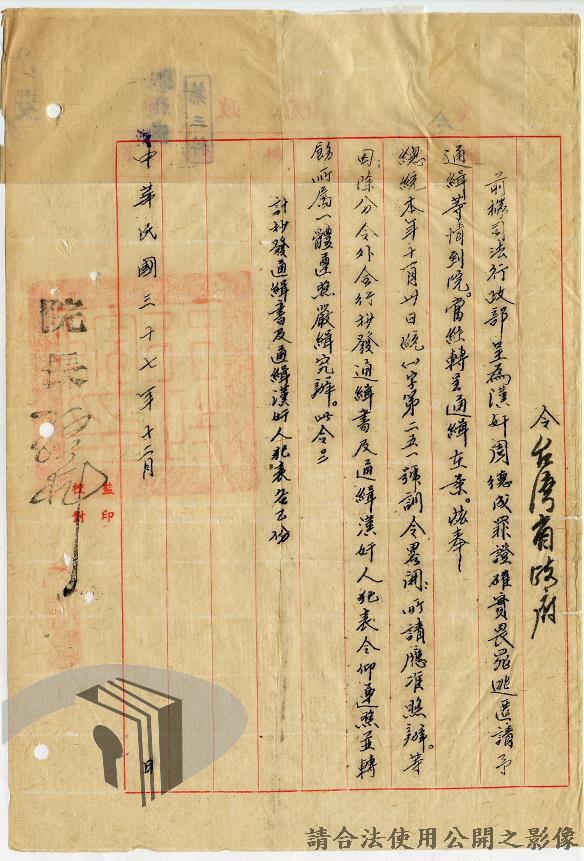 令台灣省政府
前據司法行政部呈為漢奸周德成罪證確實畏罪逃匿請予
通緝等情到院。當經轉呈通緝在案。茲奉
總統本年十一月廿日統(一)字第二五一號訓令畧開:所請應准照辦。等
因;除分令外合行抄發通緝書及通緝漢奸人犯表令仰遵照並轉
飭所屬一體遵照嚴緝究辦。此令。
計抄發通緝書及通緝漢奸人犯表各乙份
中華民國三十七年十二月 日
院長
監印
校對
第三
請合法使用公開之影像